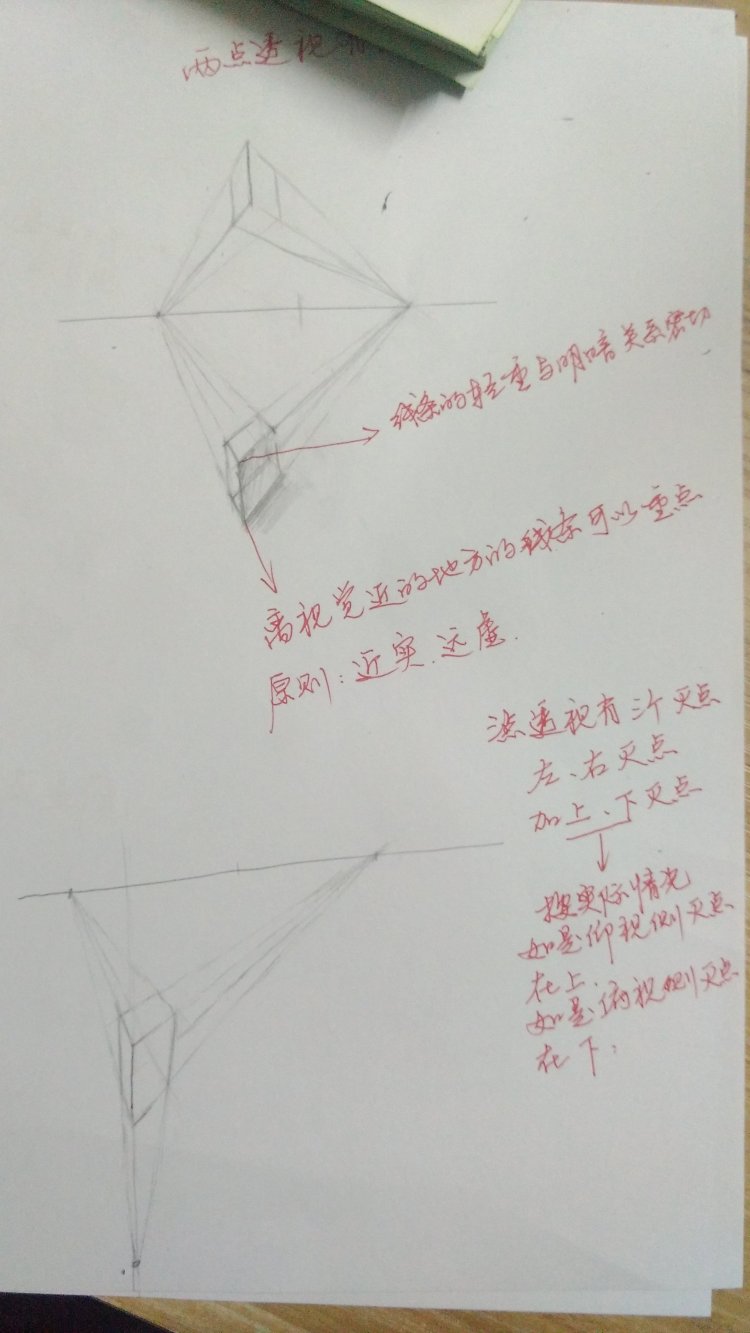 两点透视有
线条的轻重与明暗关系密切
离视觉近的地方的线条可以重点
原则：近实.远虚.
三点透视有三个灭点
左、右灭点
加上、下灭点
按实际情况
如是仰视则灭点
在上.
如是俯视则灭点
在下；